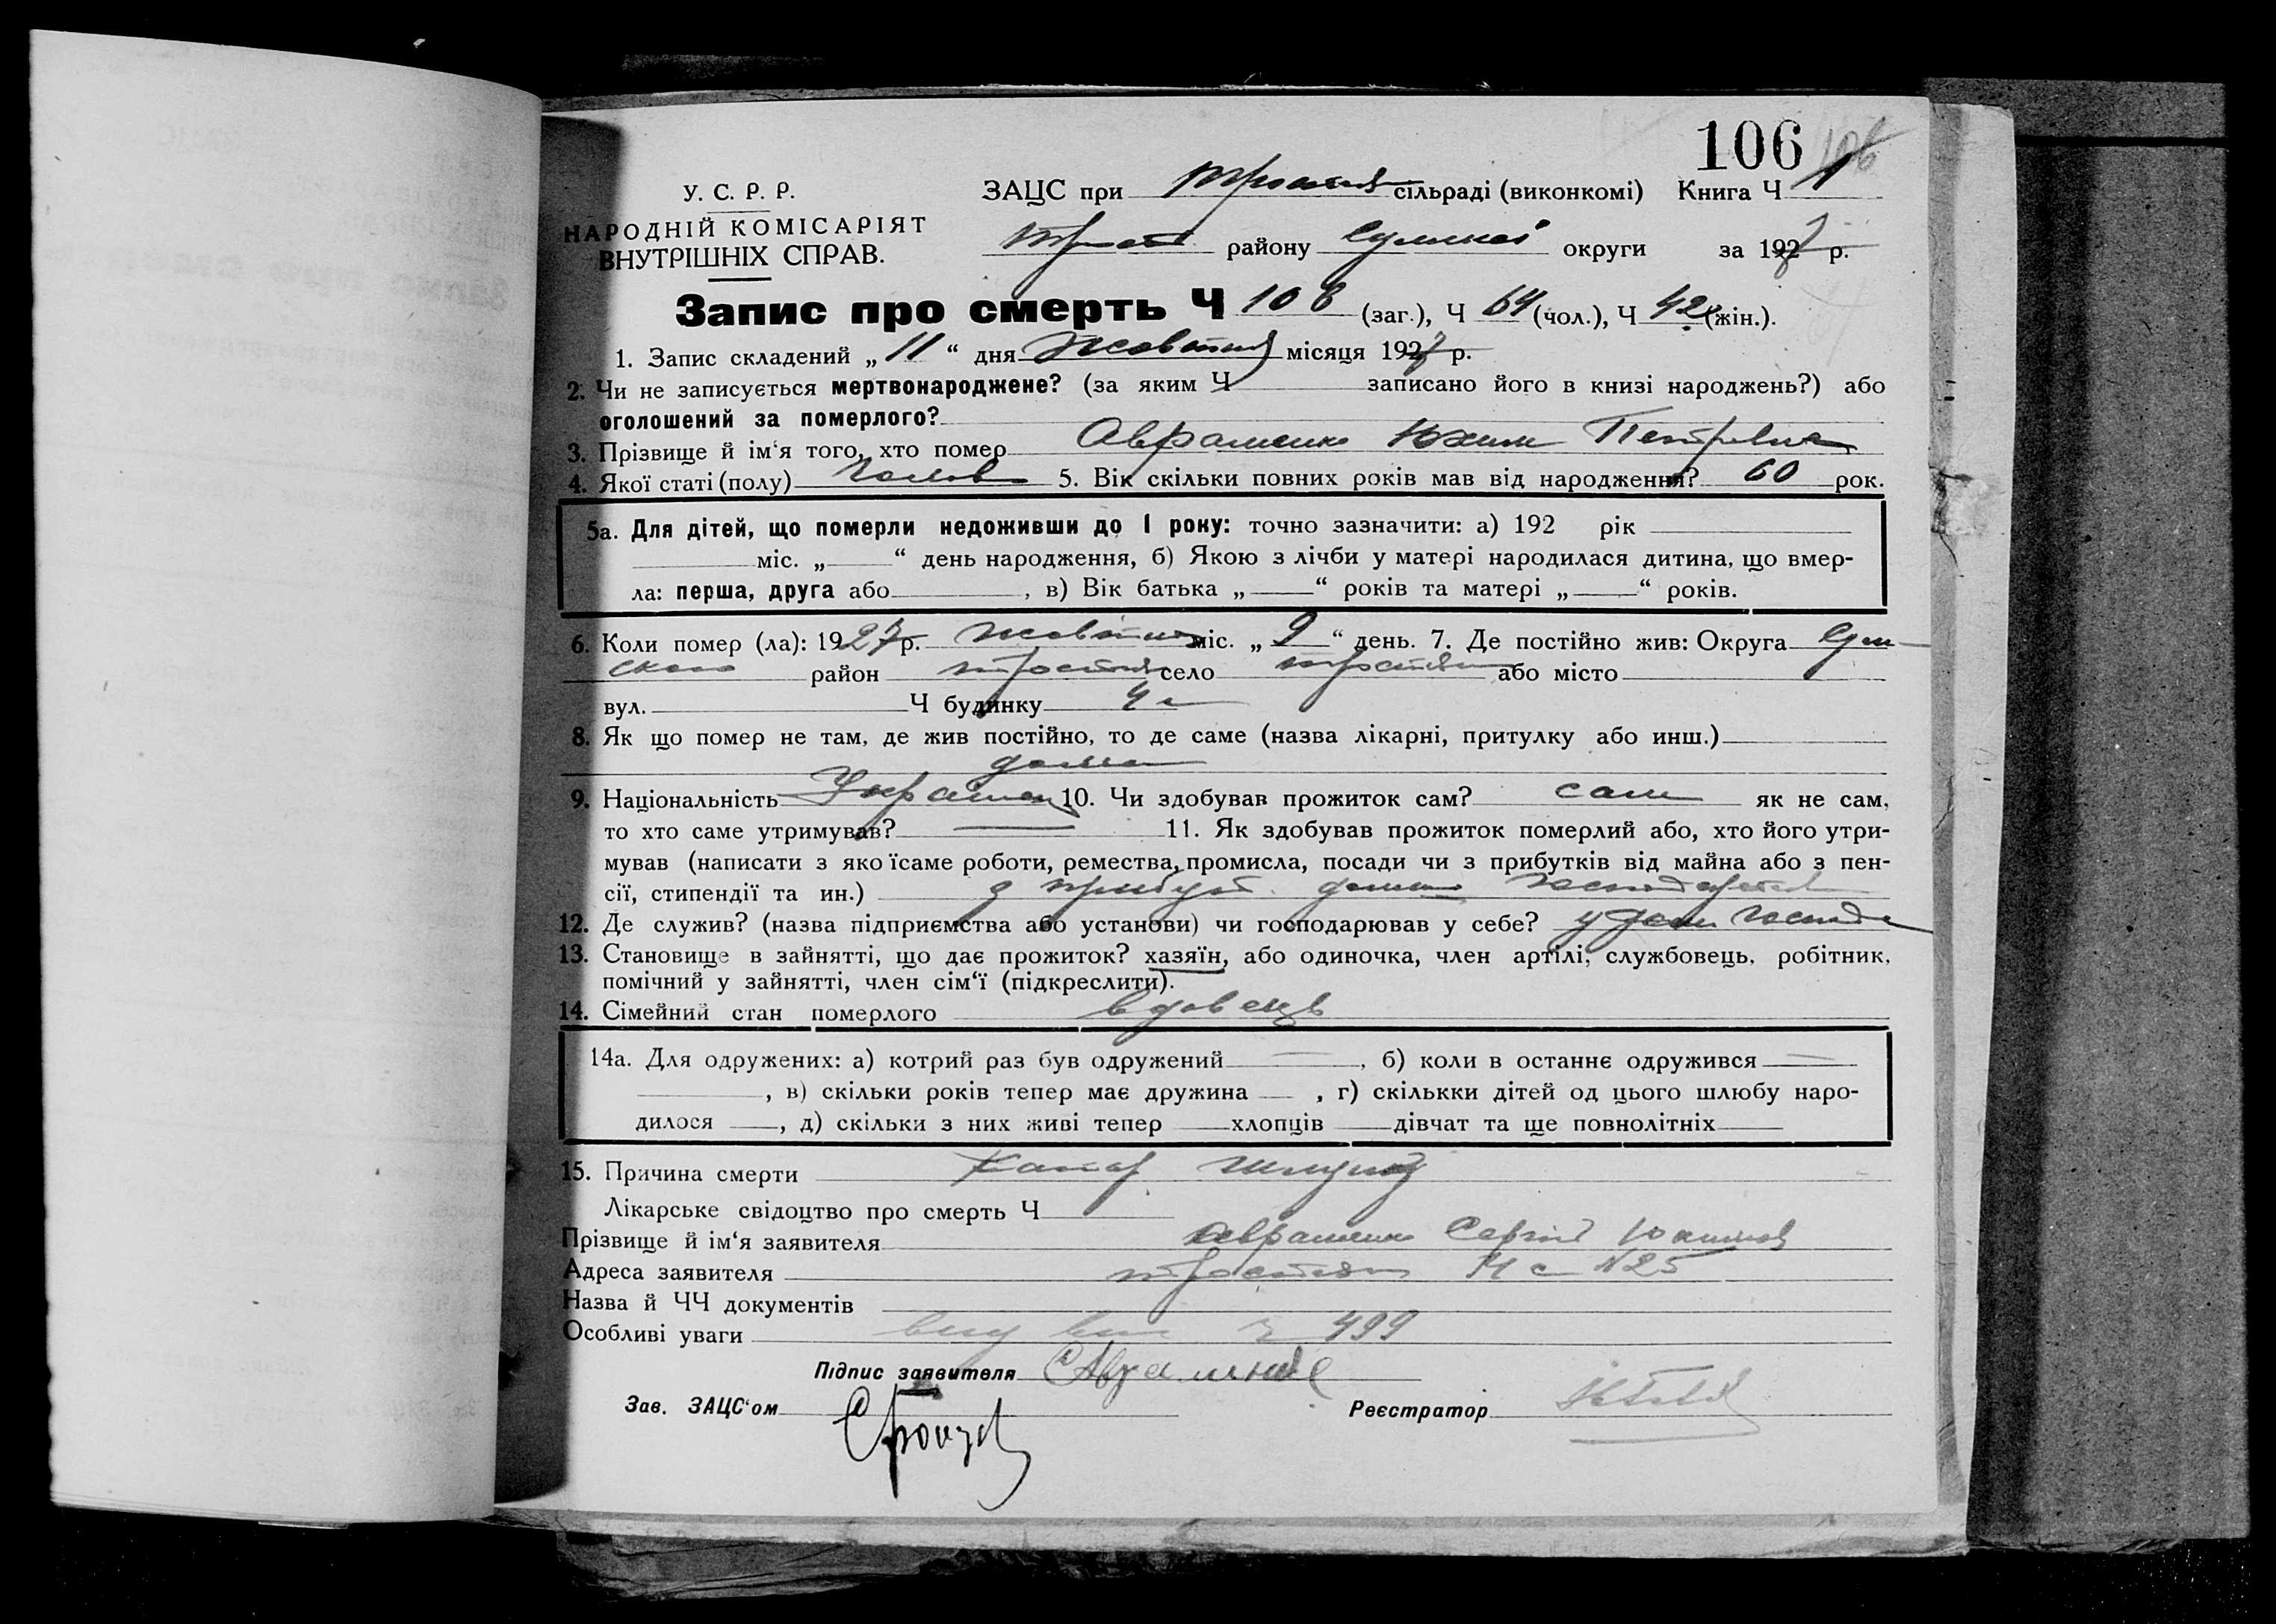 106 106
У. С. Р. Р. ЗАЦС при сільраді (виконкомі) Книга Ч 1
НАРОДНІЙ КОМІСАРІЯТ
ВНУТРІШНІХ СПРАВ.
району Сумської округи за 1927 р.
Запис про смерть Ч 106 (заг.), Ч 64 (чол.), Ч 42 (жін.).
1. Запис складений „ 11 “ дня Жовтня місяця 1927 р.
2. Чи не записується мертвонароджене? (за яким Ч записано його в книзі народжень?) або
оголошений за померлого?
3. Прізвище й ім‘я того, хто помер Авраменко Юхим Петрович
4. Якої статі (полу) Чолов 5. Вік скільки повних років мав від народження? 60 рок.
5а. Для дітей, що померли недоживши до 1 року: точно зазначити: а) 192 рік
міс. „ “ день народження, б) Якою з лічби у матері народилася дитина, що вмер-
ла: перша, друга або , в) Вік батька „ “ років та матері „ “ років.
6. Коли помер (ла): 1927 р. Жовтня міс. „ 9 “ день. 7. Де постійно жив: Округа Сум-
ська район тростян село тростян або місто
вул. Ч будинку 4 с
8. Як що помер не там, де жив постійно, то де саме (назва лікарні, притулку або инш.)
дома
9. Національність Украінец 10. Чи здобував прожиток сам? сам як не сам,
то хто саме утримував? 11. Як здобував прожиток померлий або, хто його утри-
мував (написати з яко їсаме роботи, ремества, промисла, посади чи з прибутків від майна або з пен-
сії, стипендії та ин.) з прибут. домаш господарства
12. Де служив? (назва підприємства або установи) чи господарював у себе? у дом господ
13. Становище в зайнятті, що дає прожиток? хазяїн, або одиночка, член артілі, службовець, робітник,
помічний у зайнятті, член сім‘ї (підкреслити).
14. Сімейний стан померлого вдовець
14а. Для одружених: а) котрий раз був одружений , б) коли в останнє одружився
, в) скільки років тепер має дружина , г) скількки дітей од цього шлюбу наро-
дилося , д) скільки з них живі тепер хлопців дівчат та ще повнолітніх
15. Причина смерти Катар шлунку
Лікарське свідоцтво про смерть Ч
Прізвище й ім‘я заявителя Авраменко Сергій Юхимов
Адреса заявителя тростян 4 с №25
Назва й ЧЧ документів
Особливі уваги 499
Підпис заявителя САвраменко
Зав. ЗАЦС‘ом Реєстратор